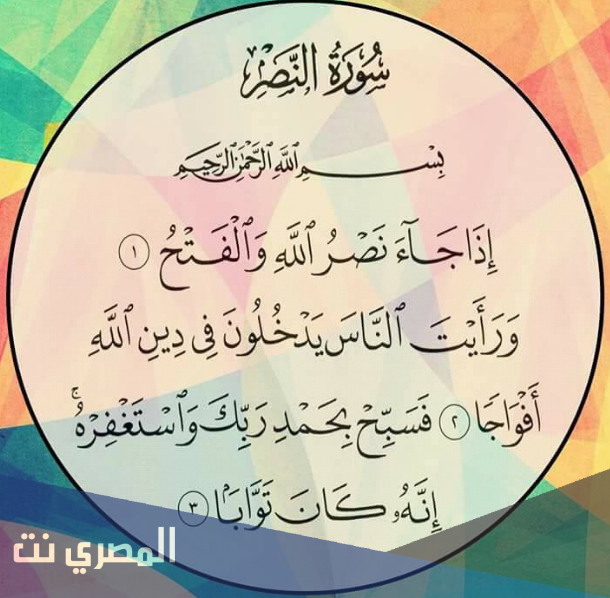 سُورَةُ النَّصْرِ
بِسْمِ ٱللَّهِ ٱلرَّحْمَٰنِ ٱلرَّحِيمِ
إِذَا جَآءَ نَصْرُ ٱللَّهِ وَٱلْفَتْحُ ١
وَرَأَيْتَ ٱلنَّاسَ يَدْخُلُونَ فِى دِينِ ٱللَّهِ
أَفْوَاجًا ٢ فَسَبِّحْ بِحَمْدِ رَبِّكَ وَٱسْتَغْفِرْهُ ۚ
إِنَّهُۥ كَانَ تَوَّابًۢا ٣
المصري نت